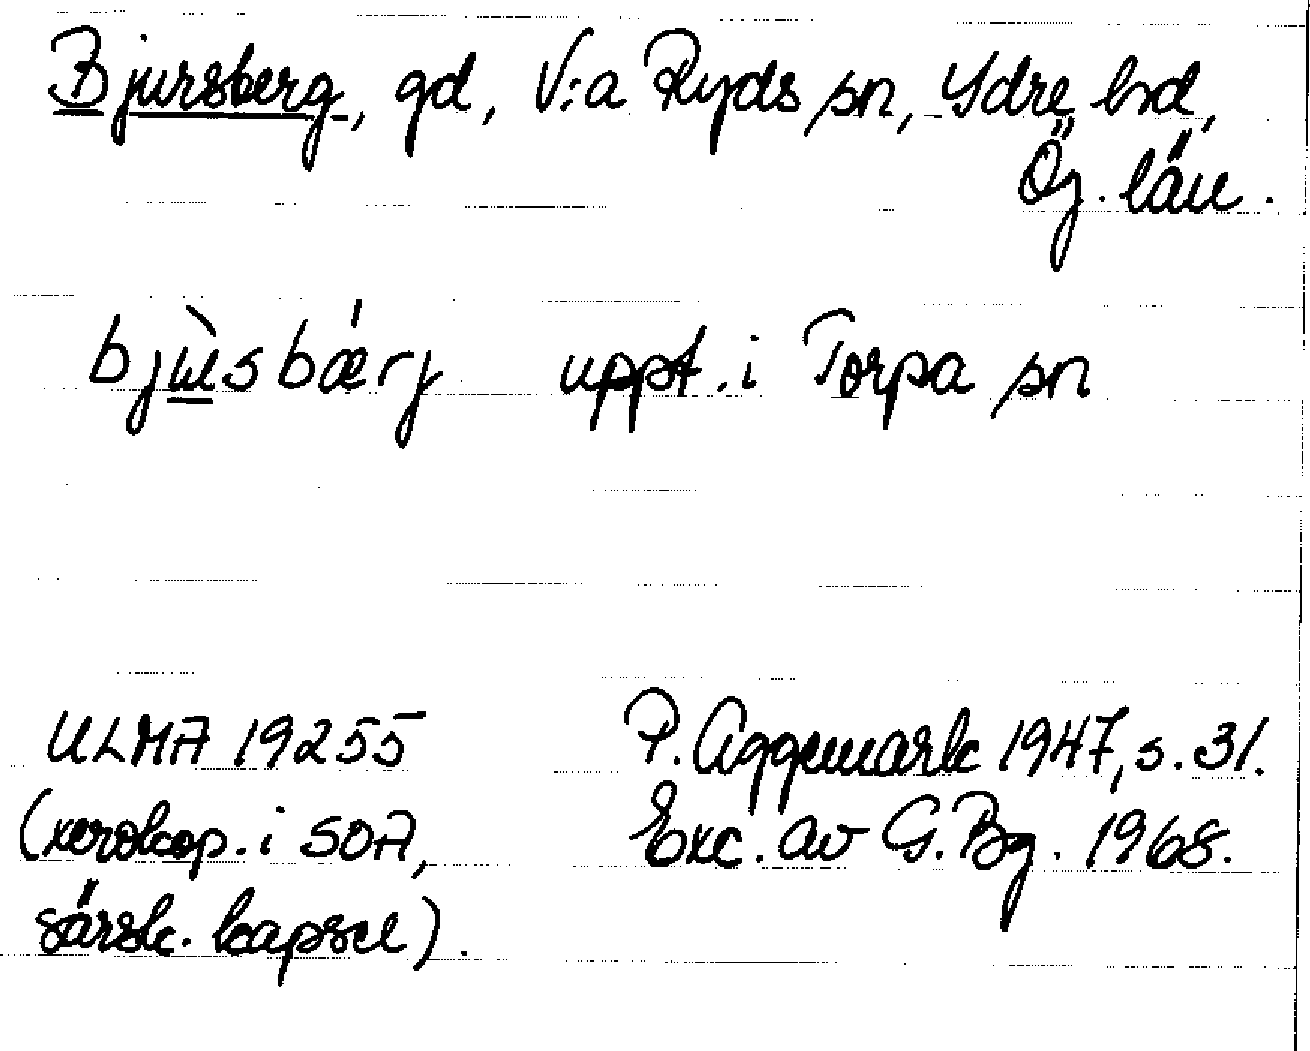 Bjursberg, gd, V:a Ryds sn, Ydre hd,
Ög. län.
bjùsbǽrj uppt. i Torpa sn
ULMA 19255 P. Aggemark 1947, s. 31.
(xerokop. i SOA, Exc. av G. Bg. 1968.
särsk. kapsel).